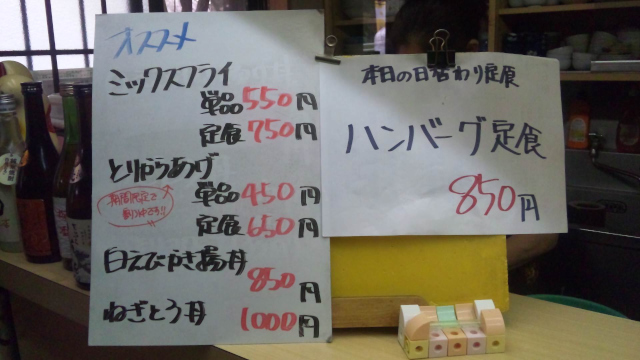 オススメ
ミックスフライ
単品550円
定食750円
とりからあげ
単品450円
期間限定で
定食650円
白えびかき揚丼
850円
ねぎとろ丼
1000円
本日の日替わり定食
ハンバーグ定食
850円